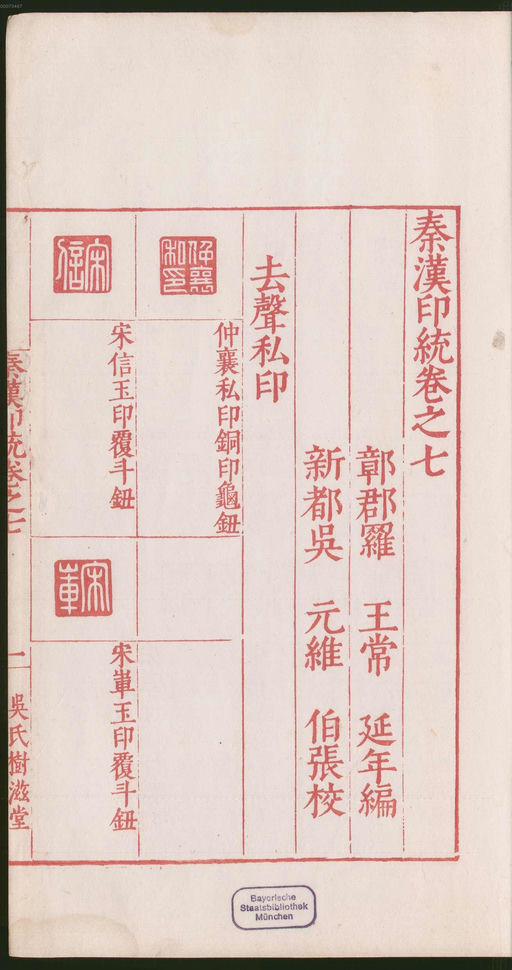 秦漢印統卷之七
鄣郡羅 王常 延年編
新都吳 元維 伯張校
去聲私印
仲襄私印
仲襄私印銅印龜鈕
宋信
宋信玉印覆斗鈕
宋
宋 玉印覆斗鈕
秦漢印統卷之七
一
吳氏樹滋堂
Bayerische
Staatsbibliothek
München